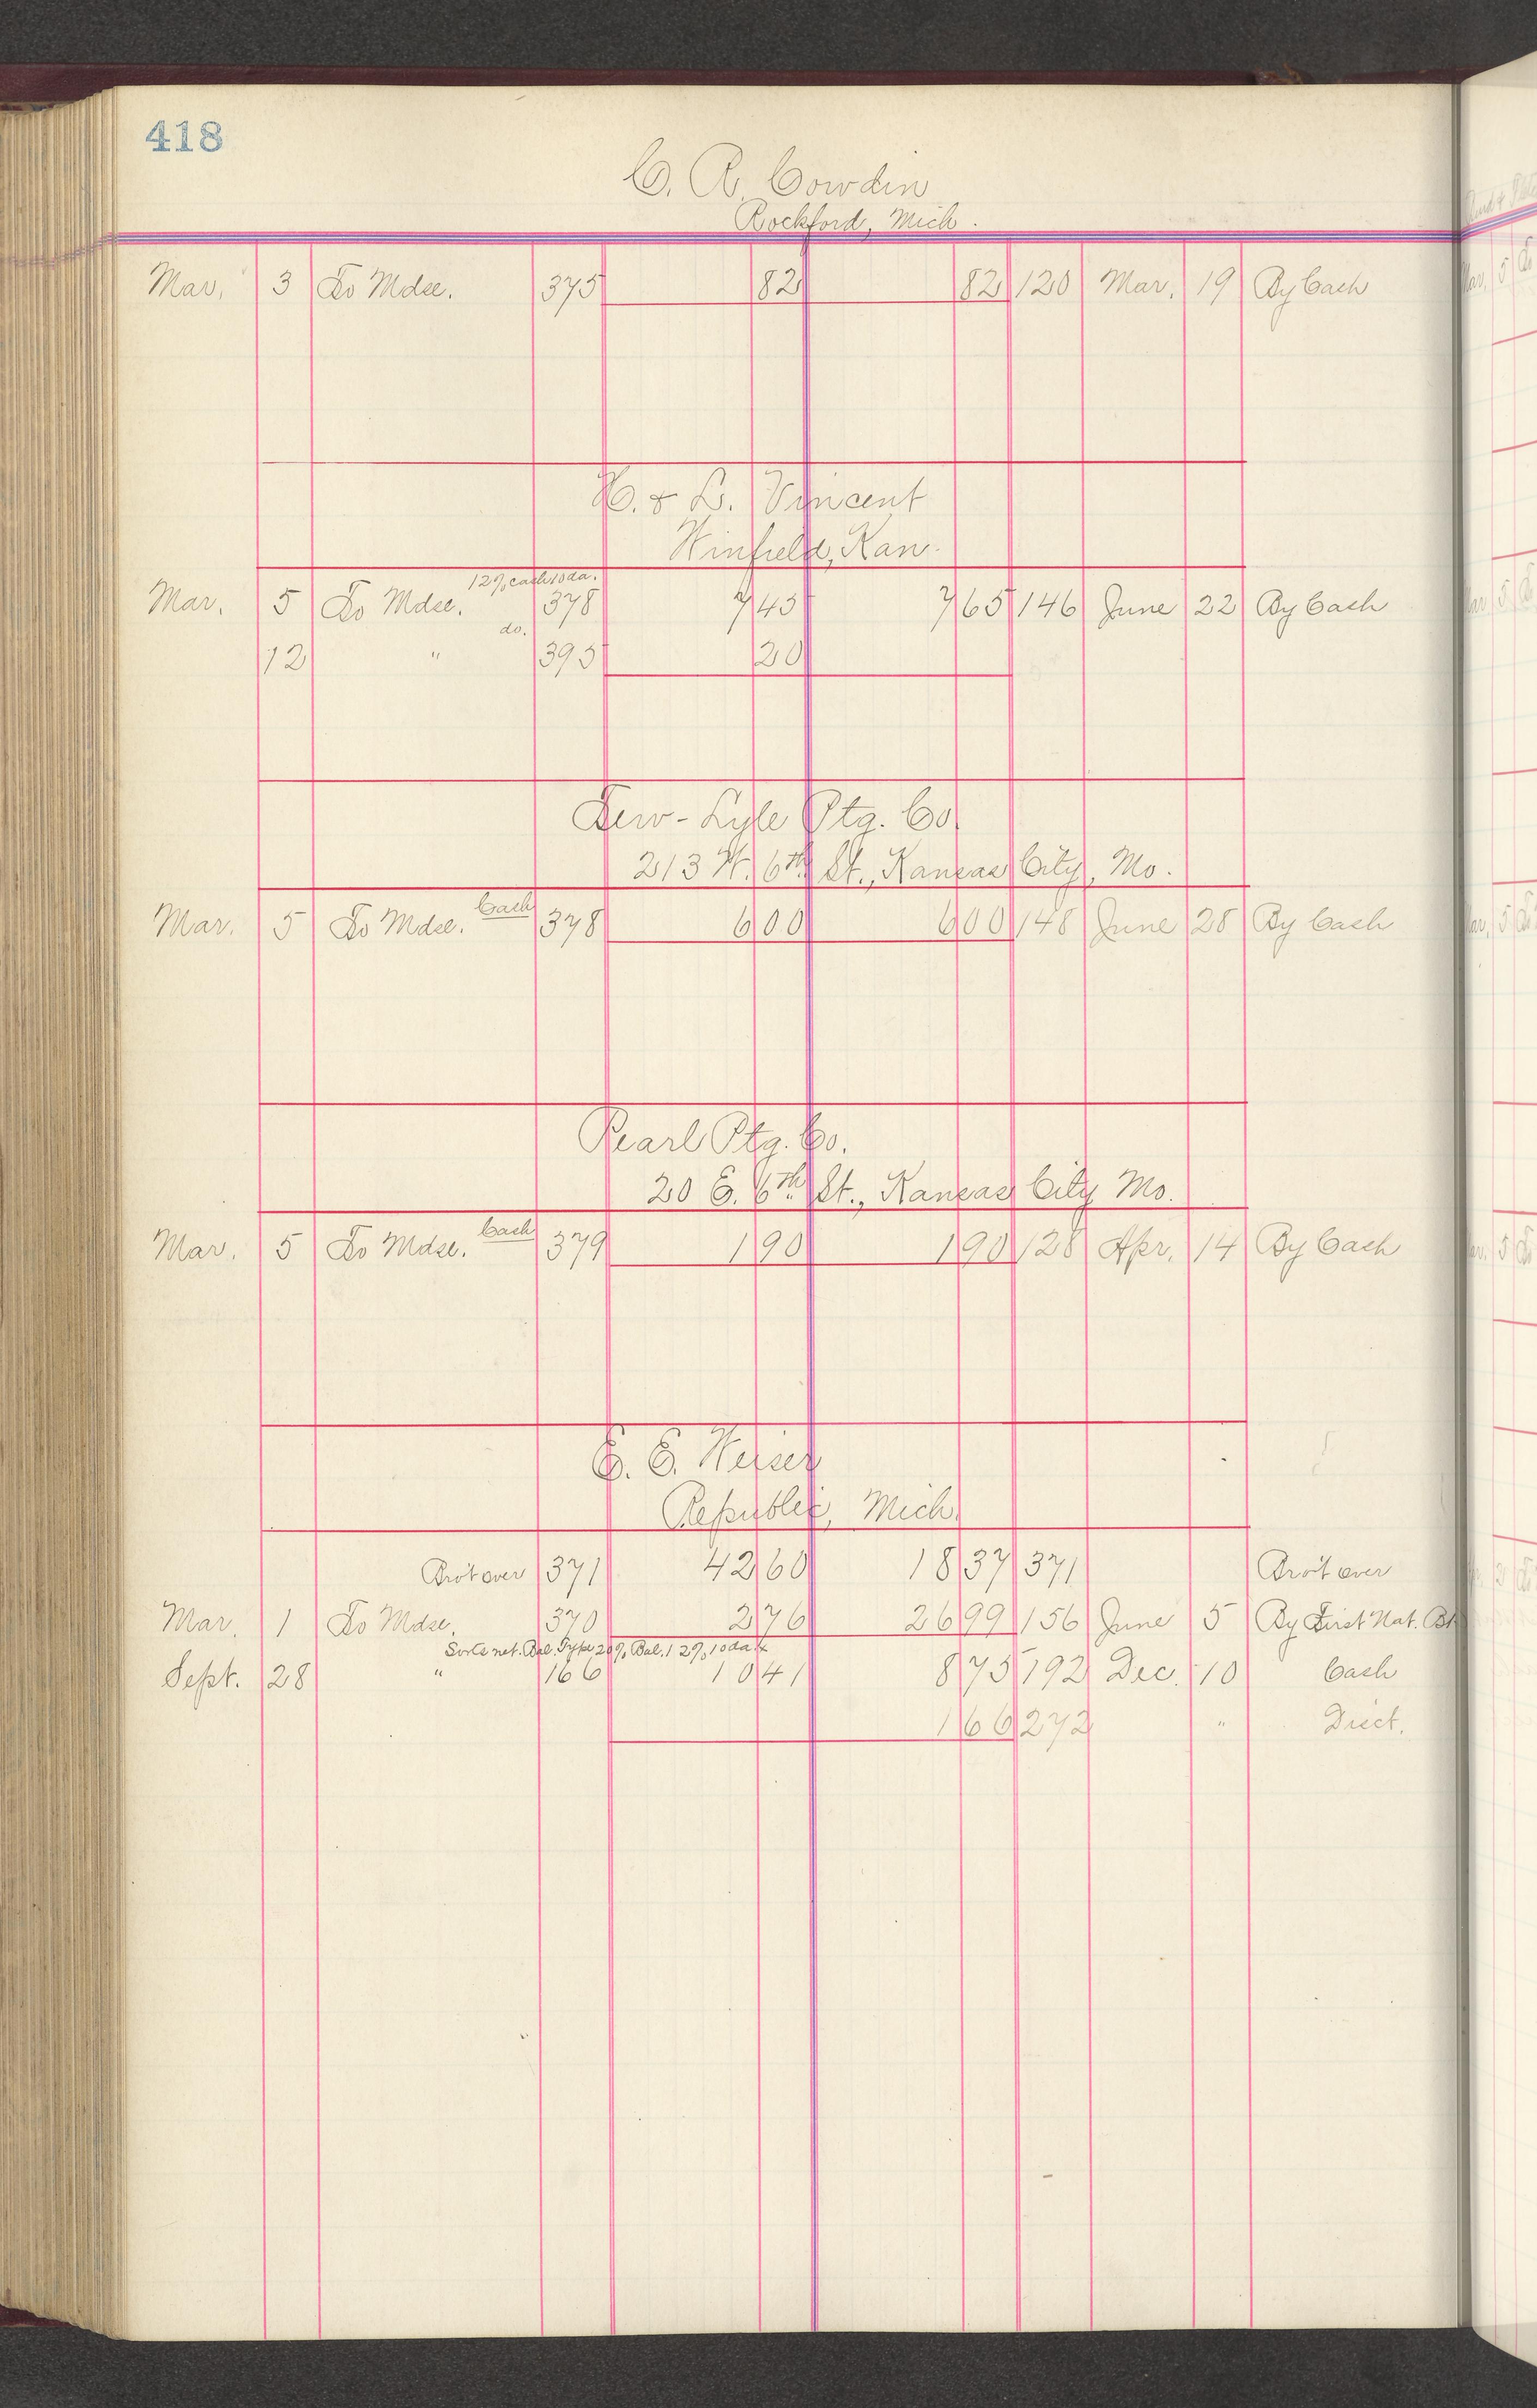 418
C. R. Cowdin
Rockford, Mich.
Mar. 3 To Mdse. 375 82 82 120 Mar. 19 By Cash
H. & L. Vincent
Winfield, Kan.
12% cash 10 da.
Mar. 5 To Mdse. 378 7 45 7 65 146 June 22 By Cash
do.
12 " 395 20
Tew-Lyle Ptg. Co.
213 W. 6th St., Kansas City, Mo.
Cash
Mar. 5 To Mdse. 378 6 00 6 00 148 June 28 By Cash
Pearl Ptg. Co.
20 E. 6th St., Kansas City Mo.
Cash
Mar. 5 To Mdse. 379 1 90 1 90 128 Apr. 14 By Cash
E. E. Weiser
Republic, Mich.
Bro't over 371 42 60 18 37 371 Bro't over
Mar. 1 To Mdse. 370 2 76 26 99 156 June 5 By First Nat. Bk
Sorts net. Bal. Type 20% Bal. 12% 10 da.
Sept. 28 " 166 10 41 8 75 192 Dec. 10 Cash
1 66 272 " Disct.